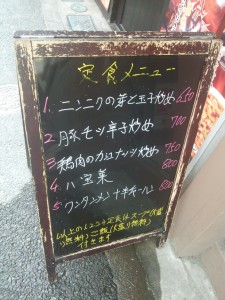 定食メニュー
1. ニンニクの芽と玉子炒め 650
2 豚モツ辛子炒め 700
3 鶏肉のカシューナッツ炒め 750
4. 八宝菜 800
5. ワンタンメン+半チャーハン 800
以上の 定食は スープ
無料 ご飯 大盛り無料
付きます